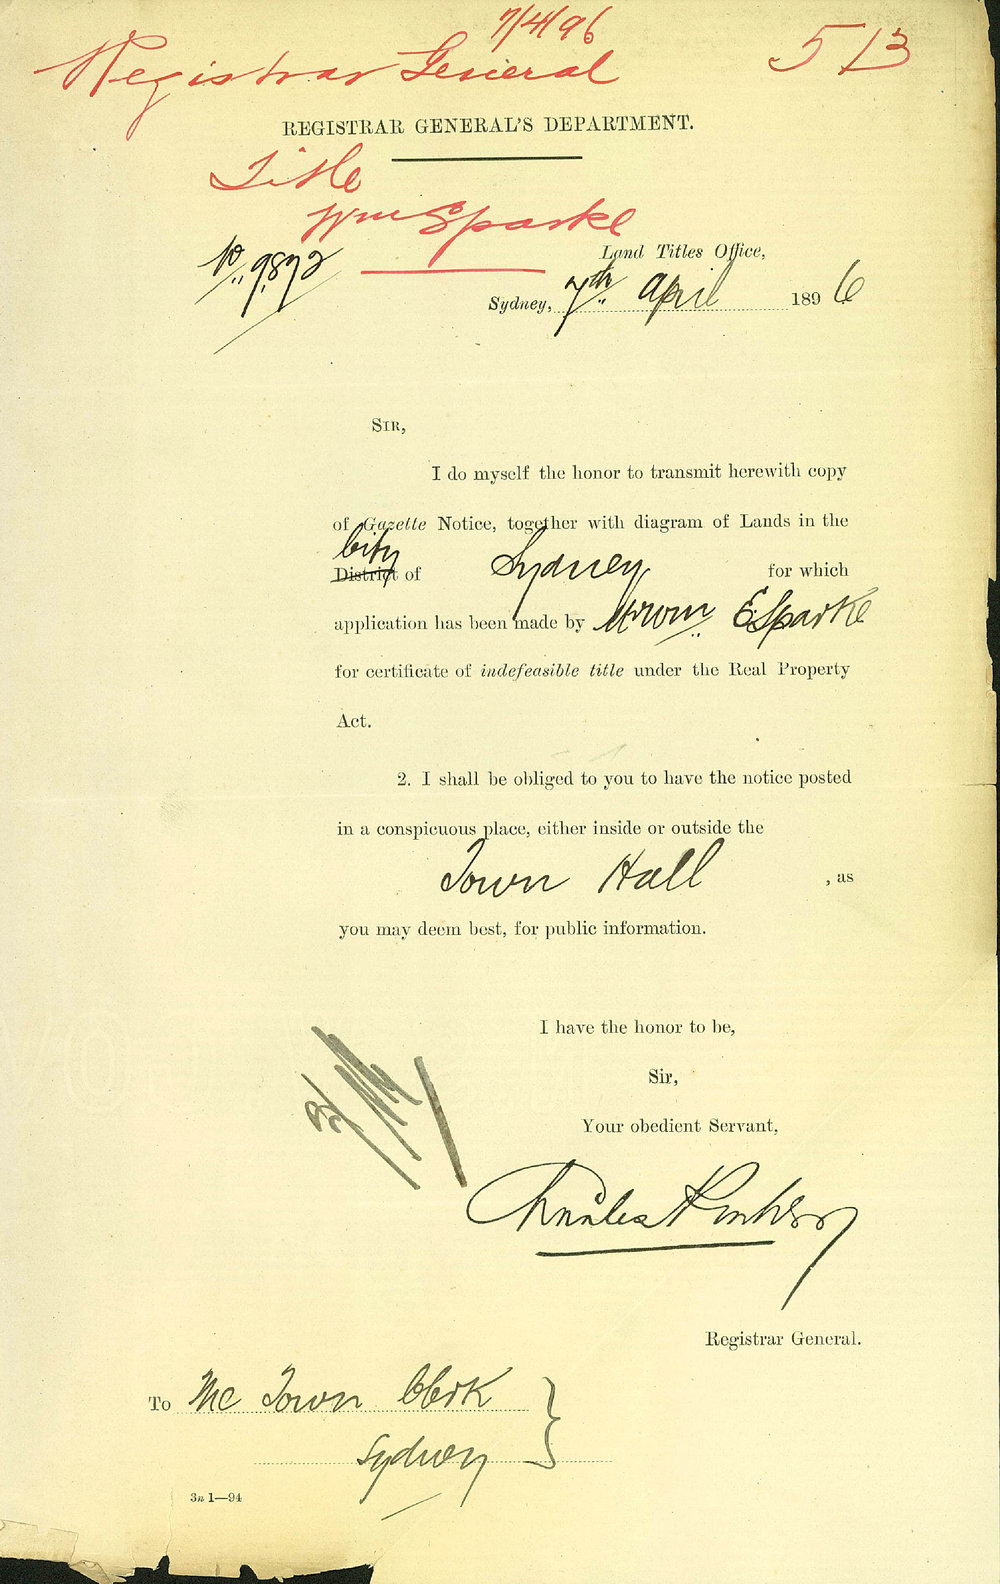 7/4/96
Registrar General 513
REGISTRAR GENERAL'S DEPARTMENT.
Title
Wm Sparke
No 9872
Land Titles Office,
Sydney, 7th April 1896
SIR,
I do myself the honor to transmit herewith copy
of Gazette Notice, together with diagram of Lands in the
City
District of Sydney for which
application has been made by Wm E Sparke
for certificate of indefeasible title under the Real Property
Act.
2. I shall be obliged to you to have the notice posted
in a conspicuous place, either inside or outside the
Town Hall , as
you may deem best, for public information.
I have the honor to be,
Sir,
Your obedient Servant,
Charles
Registrar General.
To The Town Clerk
Sydney
3n 1—94